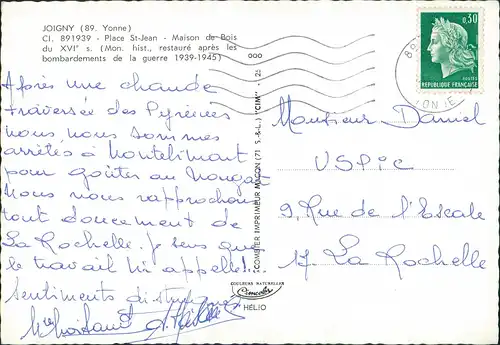 JOIGNY (89. Yonne)
Cl. 891939 - Place St-Jean - Maison de Bois
du XVIᵉ s. (Mon. hist., restauré après les
bombardements de la guerre 1939-1945)
Après une chaude
traversée des Pyrénées
nous nous sommes
arrêtés à Montélimart
pour goûter au Nougat
Nous nous rapprochons
tout doucement de
La Rochelle. je sens que
le travail m'appelle!...
Sentiments distingués
000
COMBIER IMPRIMEUR MACON (71. S.-&-L.) "CIM" - 25
COULEURS NATURELLES
Cimcolor
HÉLIO
0,30
POSTES
RÉPUBLIQUE FRANÇAISE
89
Monsieur Daniel
USPIC
9, Rue de l'Escale
17 La Rochelle